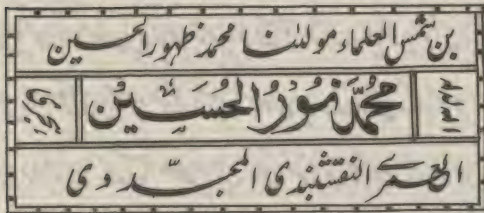 بن شمس العلماء مولٰنا محمد ظہور الحسین
محمد نور الحسین
۱۳۴۲
العمری النقشبندی المجددی